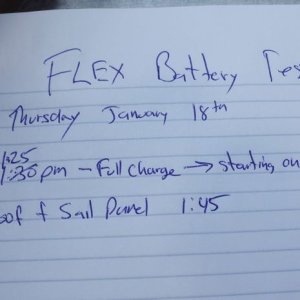 FLEX Battery Tes
Thursday January 18th
1:25
pm - Full Charge → starting on
oof f Sail Panel 1:45